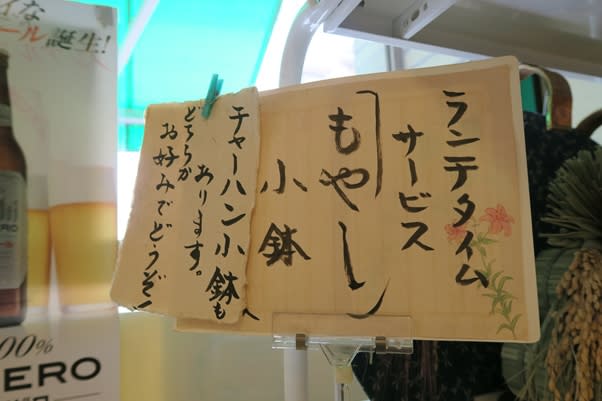 ランチタイム
サービス
「もやし」
小鉢
チャーハン小鉢も
あります。
どちらか
お好みでどうぞ!
イな
ール誕生!
00%
ERO